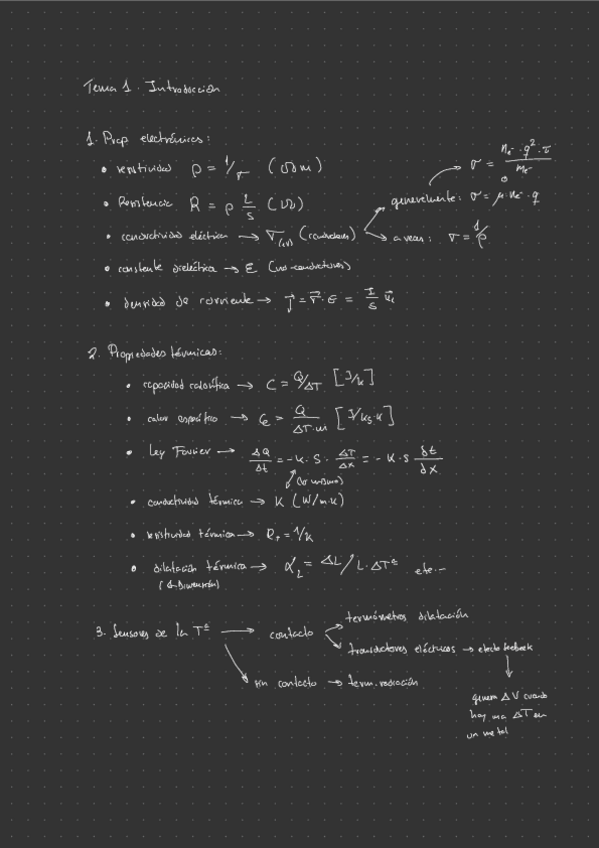 Tema 1. Introducción
1. Prop electrónicas:
• resistividad ρ = 1/σ (Ωm)
• Resistencia R = ρ L/S (Ω)
• conductividad eléctrica → σ (conductores)
generalmente: σ = μ·n_e-·q
σ = n_e-·q²·τ / m_e-
a veces: σ = 1/ρ
• constante dieléctrica → ε (no-conductores)
• densidad de corriente → J = σ·E = I/S
2. Propiedades térmicas:
• capacidad calorífica → C = Q/ΔT [J/K]
• calor específico → Ce = Q/ΔT·m [J/kg·K]
• Ley Fourier → ΔQ/Δt = -K·S·ΔT/Δx = -K·S dt/dx
(lo mismo)
• conductividad térmica → K (W/m·K)
• resistividad térmica → R_T = 1/K
• dilatación térmica → α_L = ΔL/L·ΔTª etc.-
(1-Dimensión)
3. Sensores de la Tª → contacto → termómetros dilatación
→ transductores eléctricos → efecto Seebeck
genera ΔV cuando
hay una ΔT en
un metal
→ sin contacto → term. radiación